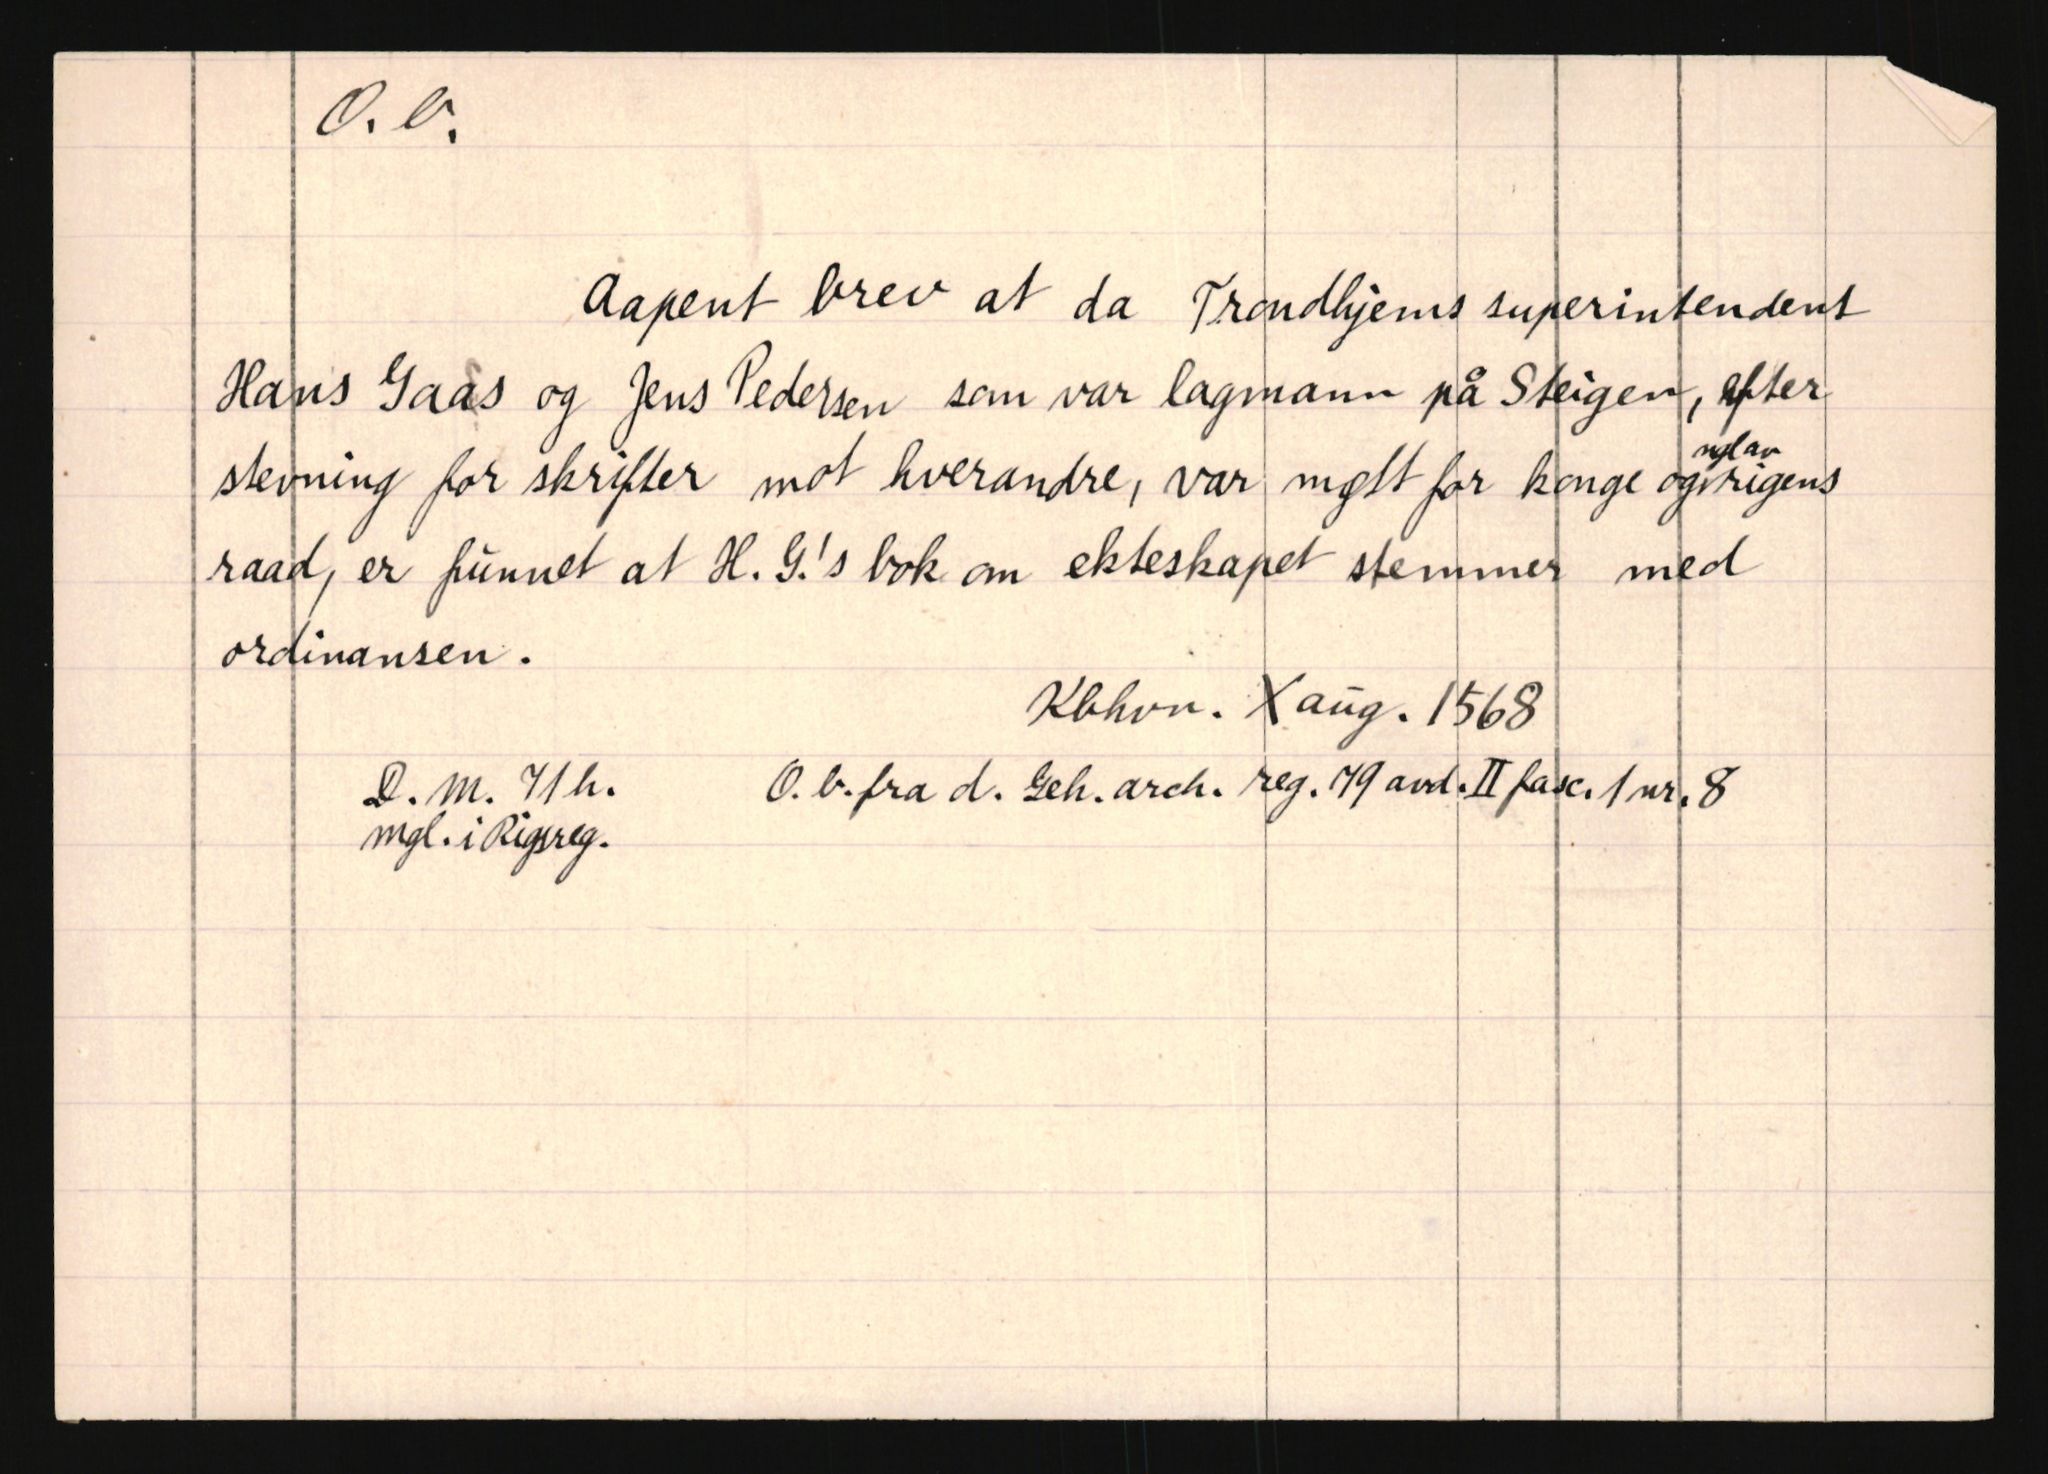 O. b.
Aapent brev at da Trondhjems superintendent
Hans Gaas og Jens Pedersen som var lagmann på Steigen, efter
stevning for skrifter mot hverandre, var møtt for konge og nglav rigens
raad, er funnet at H. G.'s bok om ekteskapet stemmer med
ordinansen.
Kbhvn. X aug. 1568
D. M. 71 h. O. b. fra d. Geh. arch. reg. 79 avd. II fasc. 1 nr. 8
mgl. i Rigsreg.